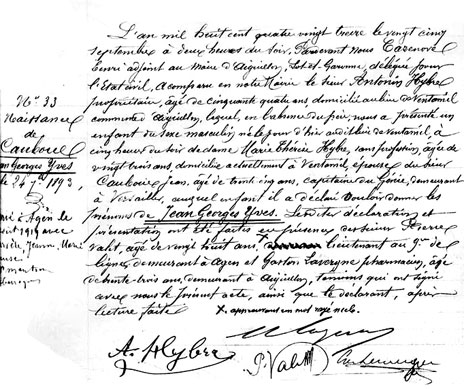 L'an mil huit cent quatre vingt treize le vingt cinq
septembre à deux heures du soir, Pardevant nous Cazenove
Henri adjoint au Maire d'Aiguillon, Lot-et-Garonne, délégué pour
l'état civil, a comparu en notre Mairie le sieur Antonin Hybre
propriétaire, âgé de cinquante quatre ans domicilié au lieu de Ventamil
commune d'Aiguillon, lequel, en l'absence du père, nous a présenté un
enfant du sexe masculin né le jour d'hier au dit lieu de Ventamil, à
cinq heures du soir de dame Marie Thérèse Hybre, sans profession, âgée de
vingt trois ans domiciliée actuellement à Ventamil, épouse du sieur
Cauboue Jean, âgé de trente cinq ans, capitaine du Génie, demeurant
à Versailles, auquel enfant il a déclaré vouloir donner les
prénoms de Jean Georges Yves. Les dites déclaration et
présentation ont été faites en présence des sieurs Pierre
Valat, âgé de vingt huit ans, lieutenant au 9me de
ligne, demeurant à Agen et Gaston Lavergne pharmacien, âgé
de trente-trois ans, demeurant à Aiguillon, témoins qui ont signé
avec nous le présent acte, ainsi que le déclarant, après
lecture faite
X. approuvant un mot rayé nul.
No 33
Naissance
de
Cauboue
Jean Georges Yves
le 24 7bre 1893
à Agen le
Jeanne Marie
A. Hybre
P. Valat